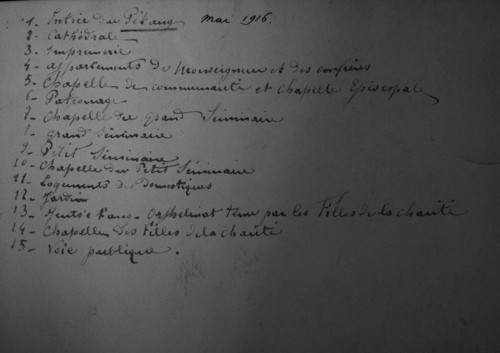 1- Entrée du Pétang Mai 1916.
2- Cathédrale
3- Imprimerie
4- Appartements de Monseigneur et des confrères
5- Chapelle de communauté et Chapelle Episcopale
6- Patronage
7- Chapelle du Grand Séminaire
8- Grand Séminaire
9- Petit Séminaire
10- Chapelle du Petit Séminaire
11- Logements des Domestiques
12- Jardin
13- Orphelinat tenu par les Filles de la charité
14- Chapelle des Filles de la charité
15- Voie publique.